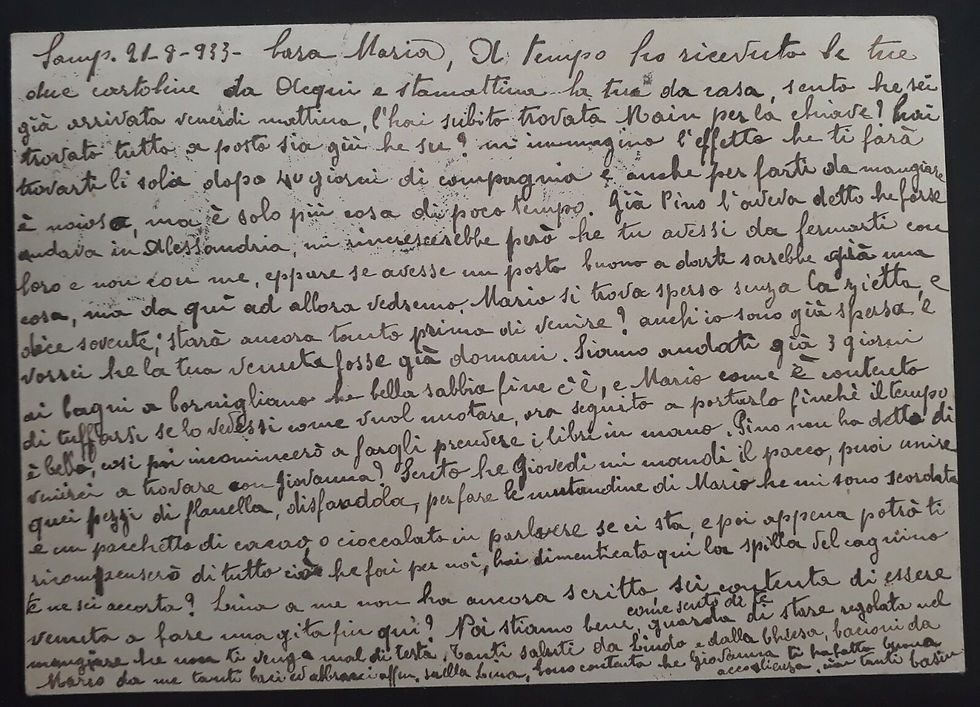 Samp. 21-8-933- Cara Maria, In tempo ho ricevuto le tue
due cartoline da Acqui e stamattina la tua da casa, sento che sei
già arrivata venerdì mattina, l'hai subito trovata per la chiave? hai
trovato tutto a posto sia giù che su? mi immagino l'effetto che ti farà
trovarti li sola dopo 40 giorni di compagnia e anche per farti da mangiare
è noiosa, ma è solo più cosa di poco tempo. Già Pino l'aveva detto che forse
andava in Alessandria, mi rincrescerebbe però che tu avessi da fermarti con
loro e non con me, eppure se avesse un posto buono a darti sarebbe già una
cosa, ma da qui ad allora vedremo. Mario si trova sperso senza la zietta, e
dice sovente; starà ancora tanto prima di venire? anch'io sono già spersa, e
vorrei che la tua venuta fosse già domani. Siamo andati già 3 giorni
ai bagni a Cornigliano che bella sabbia fine c'è, e Mario come è contento
di tuffarsi se lo vedessi come vuol nuotare, ora seguito a portarlo finchè il tempo
è bello, così poi incomincerò a fargli prendere i libri in mano. Pino non ha detto di
venirci a trovare con Giovanna? Sento che Giovedì mi mandi il pacco, puoi unire
quei pezzi di flanella, disfandola, per fare le mutandine di Mario che mi sono scordata
e un pacchetto di cacao, o cioccolato in polvere se ci sta, e poi appena potrò ti
ricompenserò di tutto ciò che fai per noi, hai dimenticato qui la spilla del cagnino
te ne sei accorta? Lina a me non ha ancora scritto, sei contenta di essere
venuta a fare una gita fin qui? Noi stiamo bene, come sento di te guarda di stare regolata nel
mangiare che non ti venga mal di testa. Tanti saluti da Guido e dalla Chiesa, bacioni da
Mario da me tanti baci ed abbracci aff. sorella Lina, Sono contenta che Giovanna ti ha fatto buona
accoglienza, tanti bacini